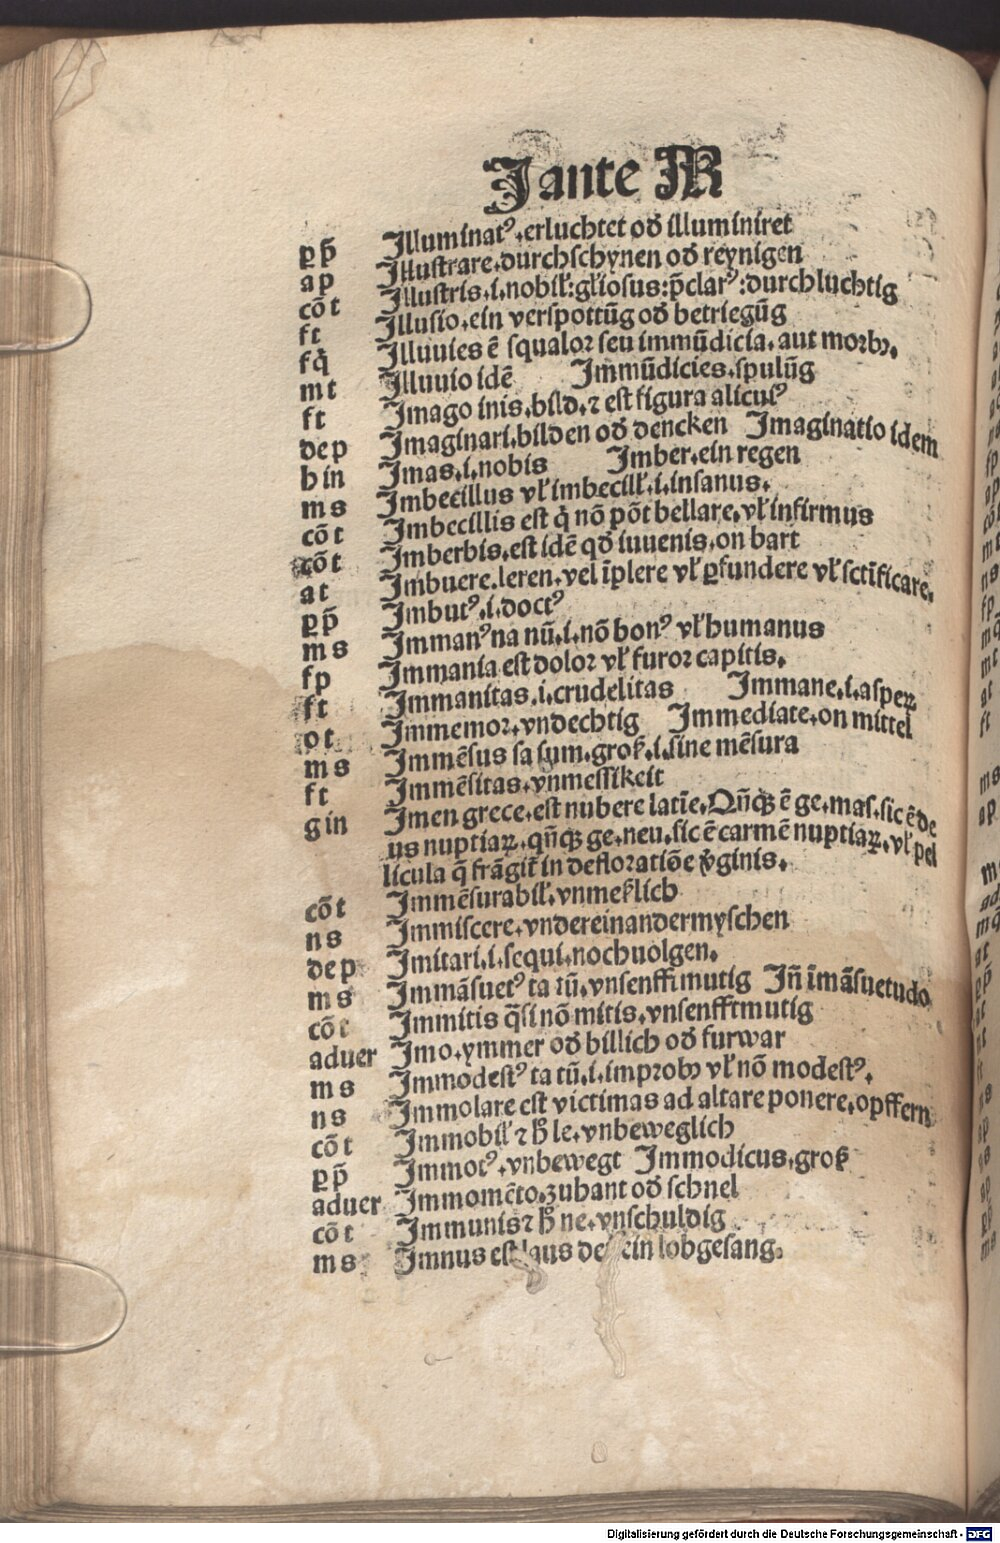 J ante M
ꝑp̄ Jlluminatꝰ. erluchtet od̛ illuminiret
ap Jllustrare. durchschynen od̛ reynigen
cō t Jllustris. i. nobil̛: gl̛iosus: p̄clarꝰ: durchluchtig
ft Jllusio. ein verspottūg od̛ betriegūg
fq̄ Jlluuies ē squalor seu immūdicia. aut morbꝰ.
mt Jlluuio idē Jm̄mūdicies. spulūg
ft Jmago inis. bild. ⁊ est figura alicuiꝰ
dep Jmaginari. bilden od̛ dencken Jmaginatio idem
hin Jmas. i. nobis Jmber. ein regen
ms Jmbecillus vl̛ imbecill̛. i. insanus.
cō t Jmbecillis est q̄ nō pōt bellare. vl̛ infirmus
cō t Jmberbis. est idē qd̛ iuuenis. on bart
at Jmbuere. leren. vel īplere vl̛ ꝑfundere vl̛ sctīficare.
ꝑp̄ Jmbutꝰ. i. doctꝰ
ms Jmmanꝰ na nū. i. nō bonꝰ vl̛ humanus
fp Jmmania est dolor vl̛ furor capitis.
ft Jmmanitas. i. crudelitas Jmmane. i. aspeꝝ
ot Jmmemor. vndechtig Jmmediate. on mittel
ms Jmmēsus sa sum. groß. i. sine mēsura
ft Jmmēsitas. vnmessikeit
gin Jmen grece. est nubere latīe. Qn̄qꝫ ē ge. mas. sic ē de
us nuptiaꝝ. qn̄qꝫ ge. neu. sic ē carmē nuptiaꝝ. vl̛ pel
licula q̄ frāgit̄ in defloratiōe v̛ginis.
cō t Jmmēsurabil̛. vnmeßlich
ns Jmmiscere. vndereinandermyschen
dep Jmitari. i. sequi. nochuolgen.
ms Jmmāsuetꝰ ta tū. vnsenfftmutig Jn̄ īmāsuetudo
cō t Jmmitis q̄si nō mitis. vnsenfftmutig
aduer Jmo. ymmer od̛ billich od̛ furwar
ms Jmmodestꝰ ta tū. i. improbꝰ vl̛ nō modestꝰ.
ns Jmmolare est victimas ad altare ponere. opffern
cō t Jmmobil̛ ⁊ h̄ le. vnbeweglich
ꝑp̄ Jmmotꝰ. vnbewegt Jmmodicus. groß
aduer Jmmomēto. zuhant od̛ schnel
cō t Jmmunis ⁊ h̄ ne. vnschuldig
ms Jmnus est laus ein lobgesang.
Digitalisierung gefördert durch die Deutsche Forschungsgemeinschaft - DFG